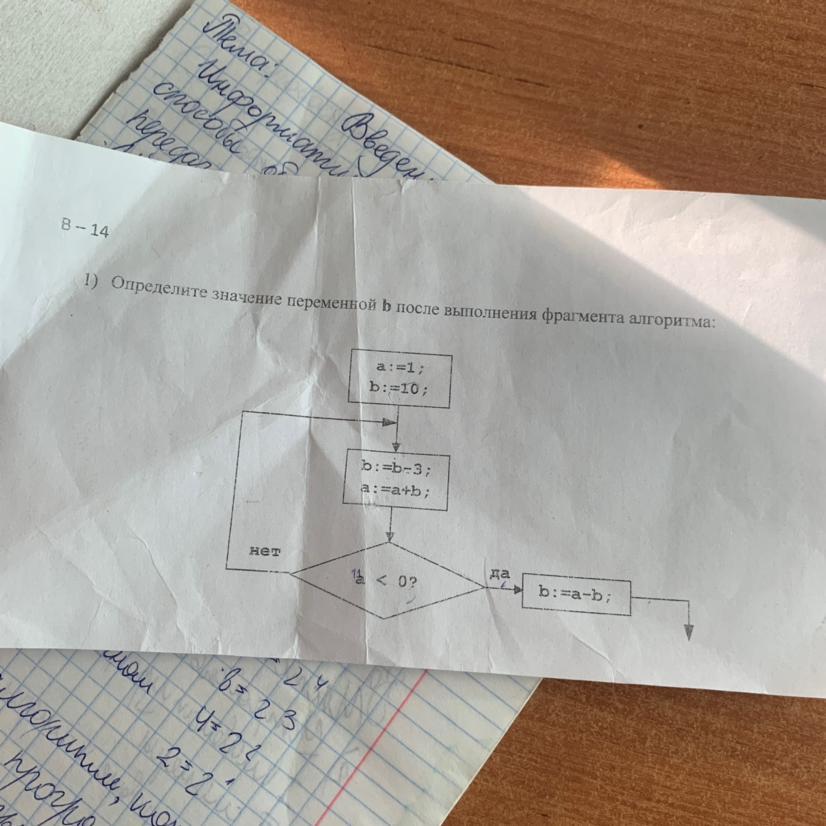 Тема:
Введен
Информати
способы об
передат
В – 14
1) Определите значение переменной b после выполнения фрагмента алгоритма:
a:=1;
b:=10;
b:=b-3;
a:=a+b;
нет
a < 0?
да
b:=a-b;
2 4
8= 2 3
4= 2 2
2= 2 1
лгоритм, пош